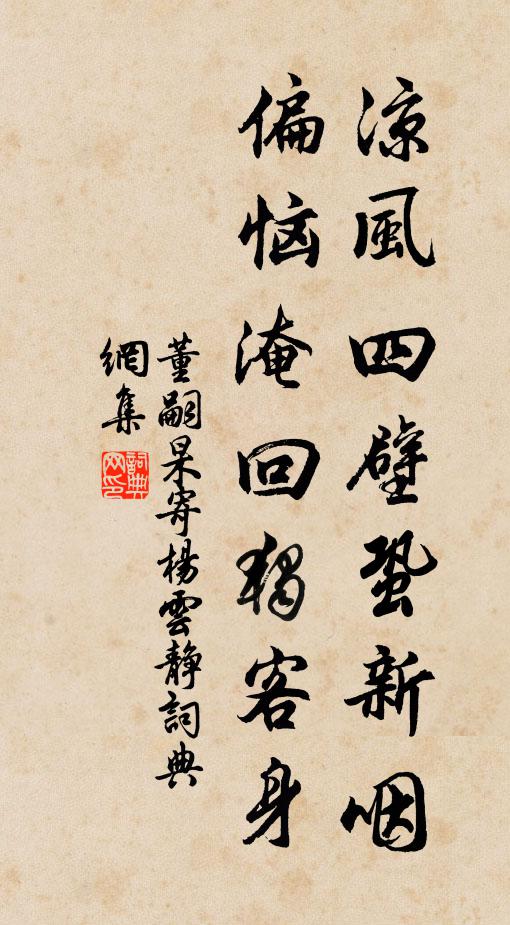 涼風四壁蛩新咽
偏惱淹回獨客身
董嗣杲寄楊雲靜詞典
網集
詞典網印